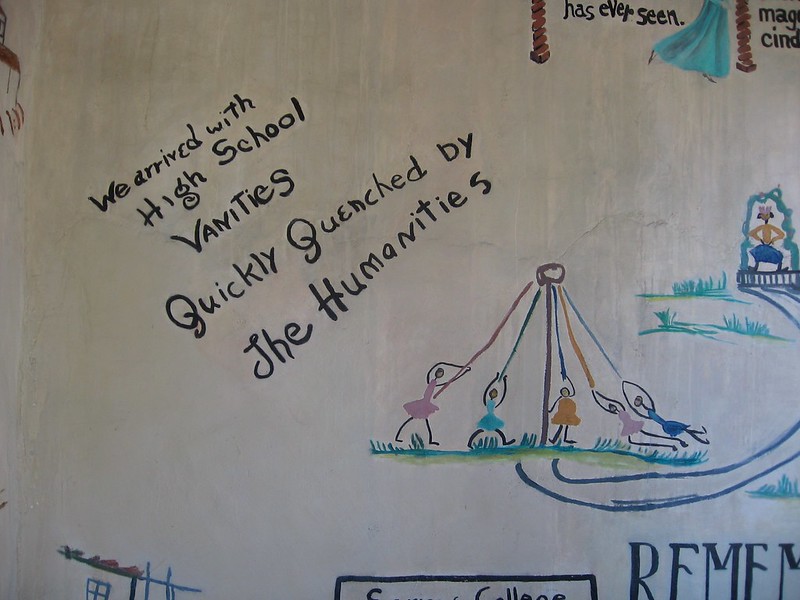 has ever seen.
We arrived with
High School
VANITIES
Quickly Quenched by
The Humanities
College